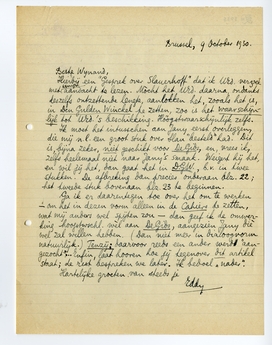 Brussel, 9 October 1930.
Beste Wijnand,
Hierbij een "Gesprek over Slauerhoff" dat ik Urd. verzoek
met aandacht te lezen. Mocht het Urd. daarna, ondanks
de lengte, aanlokken het, zooals het is,
in Den Gulden Winckel te zetten, zoo is het waarschijn-
lijk tot Urd.'s beschikking. Hoogstwaarschijnlijk zelfs.
Ik moet het intusschen aan Jany eerst overleggen,
die mij ook een groot stuk over Slau "besteld" had. Dit
is, bijna zeker, niet geschikt voor De Gids, en, mees ik,
zelfs heelemaal niet naar Jany's smaak. Weigert hij het,
en wil jij het, dan gaat het in D.G.W. b.v. in twee
stukken? De afbreking dan precies onderaan blz. 22;
het tweede stuk bovenaan blz. 23 te beginnen.
Ga ik er daarentegen toe over het om te werken
– om het in dezen vorm alleen in de Cahiers te zetten,
wat mij anders wel spijten zou – dan geef ik de omwer-
king hoogstwsch. wel aan De Gids, aangezien Jany die
wel zal willen hebben. (Dan niet meer in dialoogvorm
natuurlijk). Tenzij, daarvoor reeds een ander werd "aan-
gezocht". Enfin, laat hooren hoe jij tegenover dit artikel
staat; de rest bespreken we later. Ik behoef "nader".
Hartelijke groeten van steeds je
Eddy